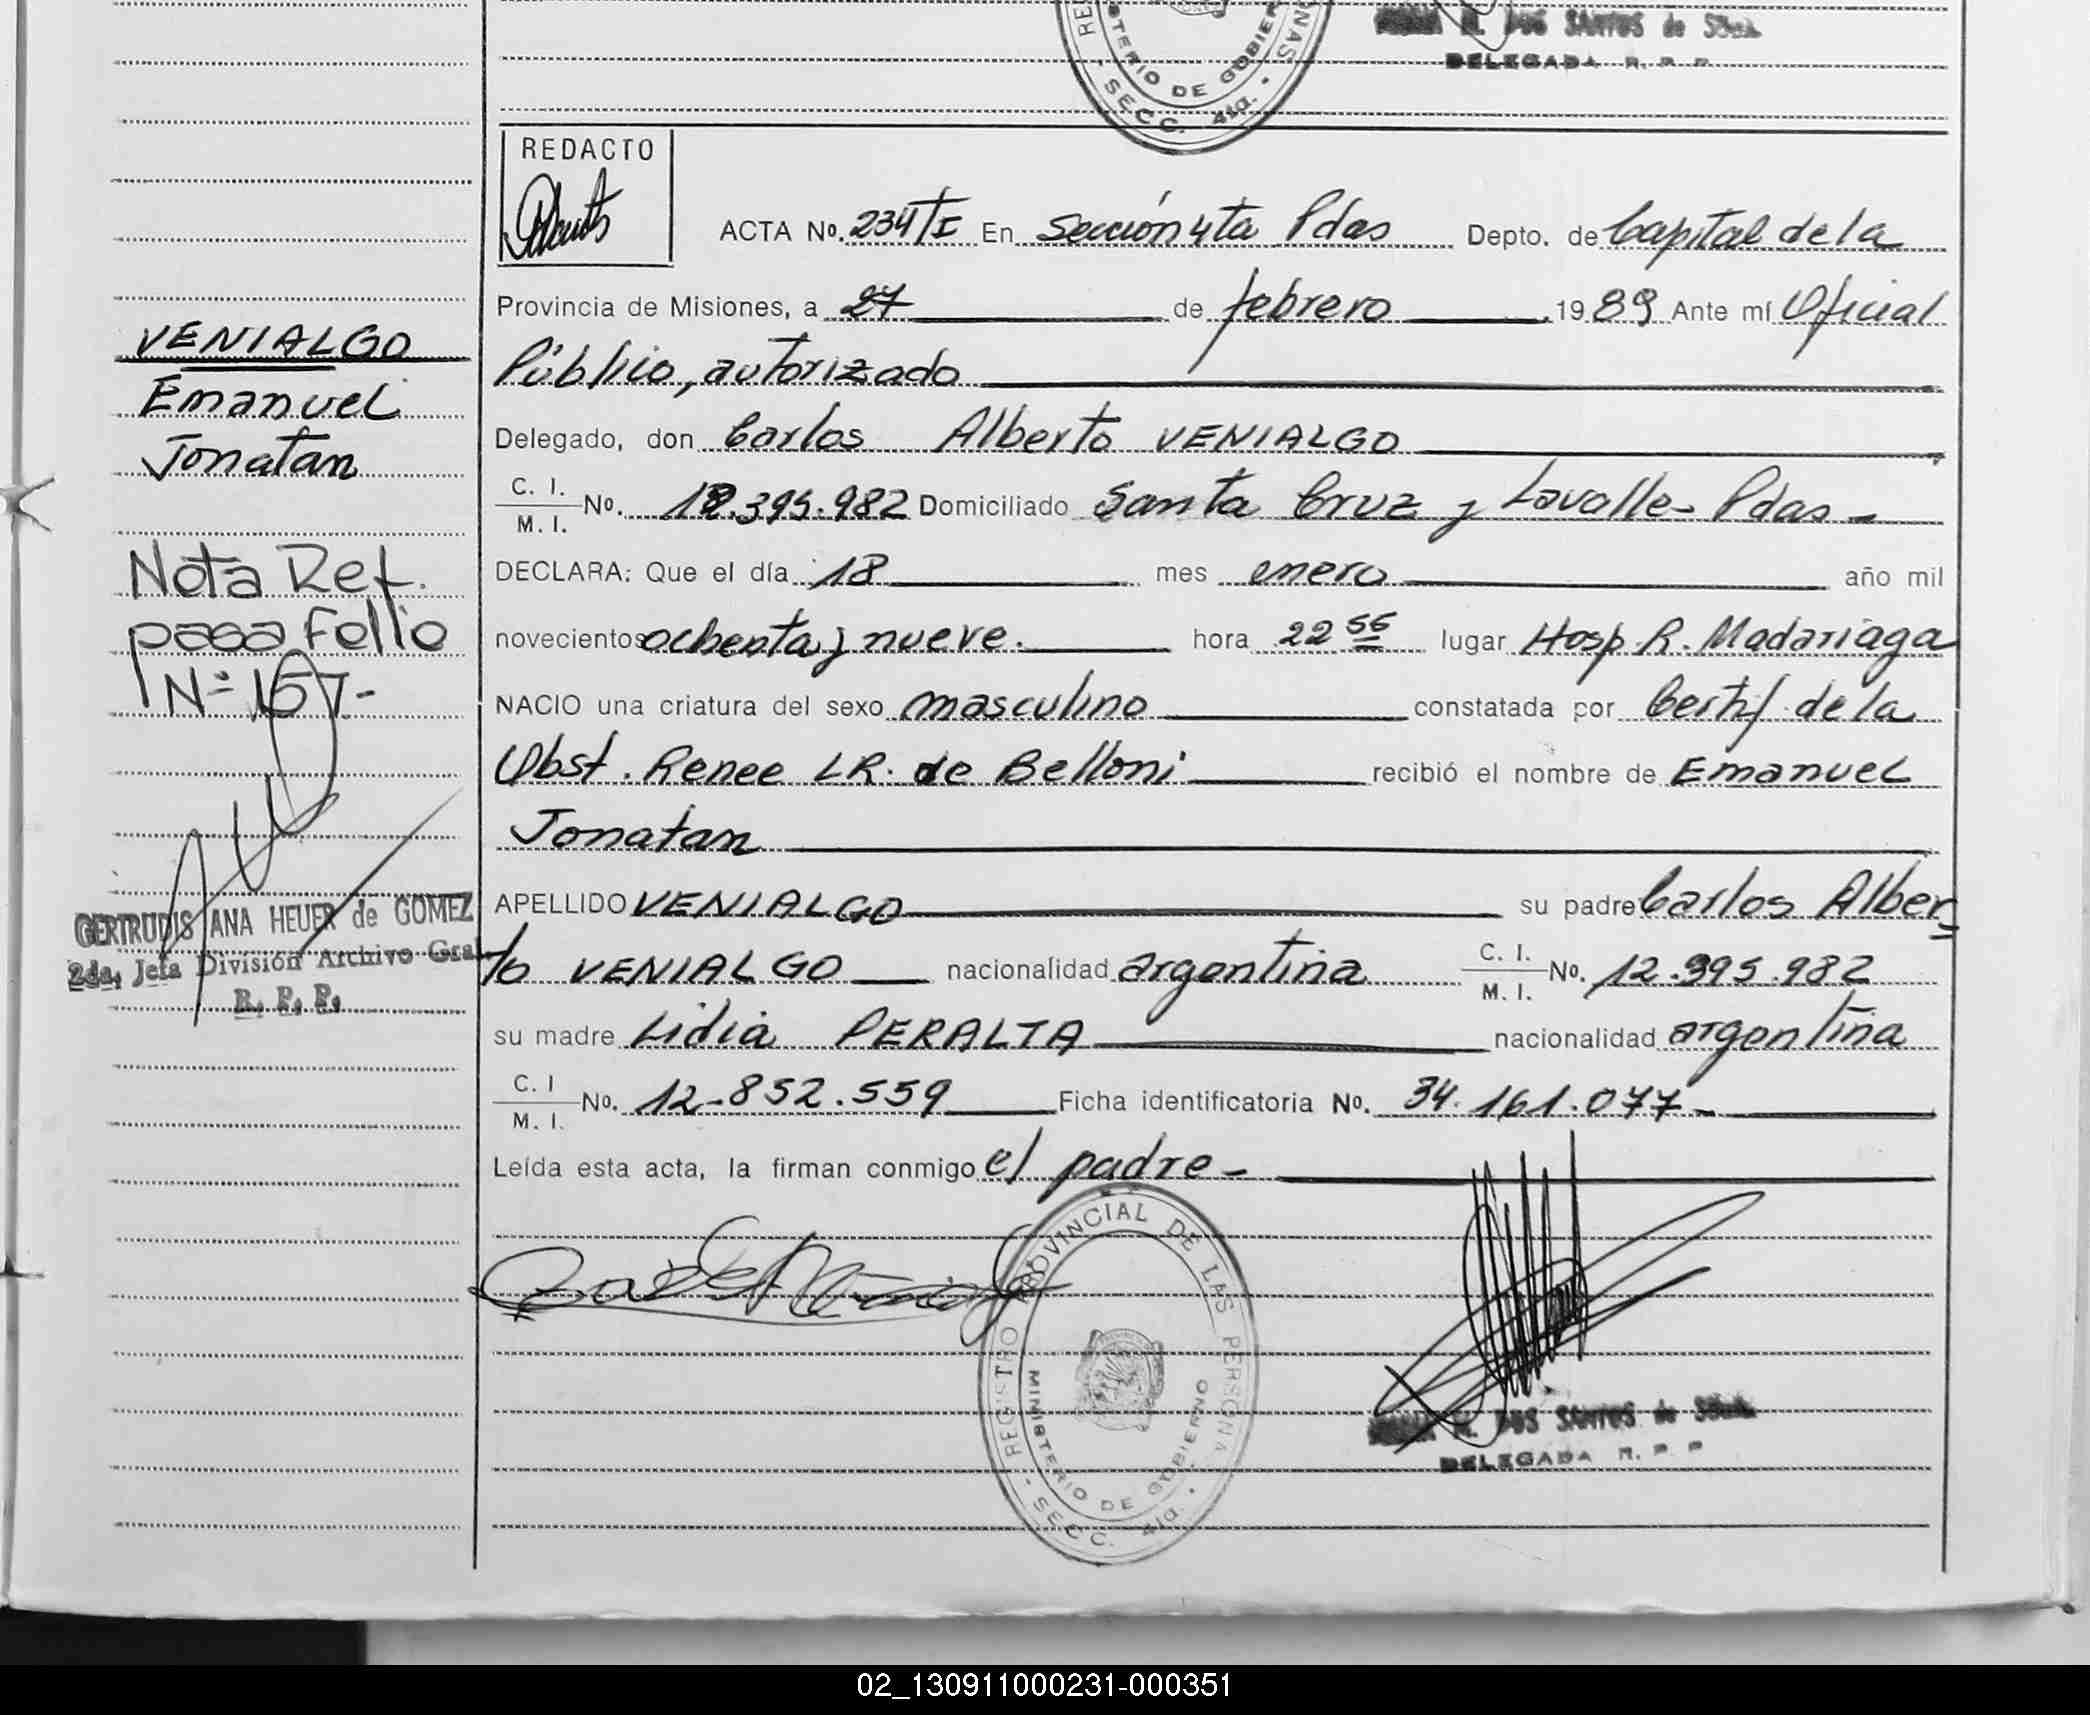 M. DOS SANTOS de
DELEGADA R. P. P.
MINISTERIO DE GOBIERNO
SECC. 4ta.
REDACTO
ACTA No. 234/TI En Sección 4ta Pdas Depto. de Capital de la
Provincia de Misiones, a 27 de febrero 1989 Ante mí Oficial
Público, autorizado
Delegado, don Carlos Alberto VENIALGO
C. I.
M. I. No. 12.395.982 Domiciliado Santa Cruz y Lavalle- Pdas-
DECLARA: Que el día 18 mes enero año mil
novecientos ochenta y nueve. hora 22 56 lugar Hosp R. Madariaga
NACIO una criatura del sexo masculino constatada por Certif de la
Obst. Renee LR. de Belloni recibió el nombre de Emanuel
Jonatan
APELLIDO VENIALGO su padre Carlos Alber=
to VENIALGO nacionalidad argentina C. I. M. I. No. 12.395.982
su madre Lidia PERALTA nacionalidad argentina
C. I
M. I. No. 12-852.559 Ficha identificatoria No. 34.161.077-
Leída esta acta, la firman conmigo el padre-
REGISTRO PROVINCIAL DE LAS PERSONAS
MINISTERIO DE GOBIERNO
- SECC. 4ta. -
M. DOS SANTOS de
DELEGADA R. P. P
VENIALGO
Emanuel
Jonatan
Nota Ref.
pasa Folio
Nº 157-
GERTRUDIS ANA HEUER de GOMEZ
2da. Jefa División Archivo Gral
R. P. P.
02_130911000231-000351